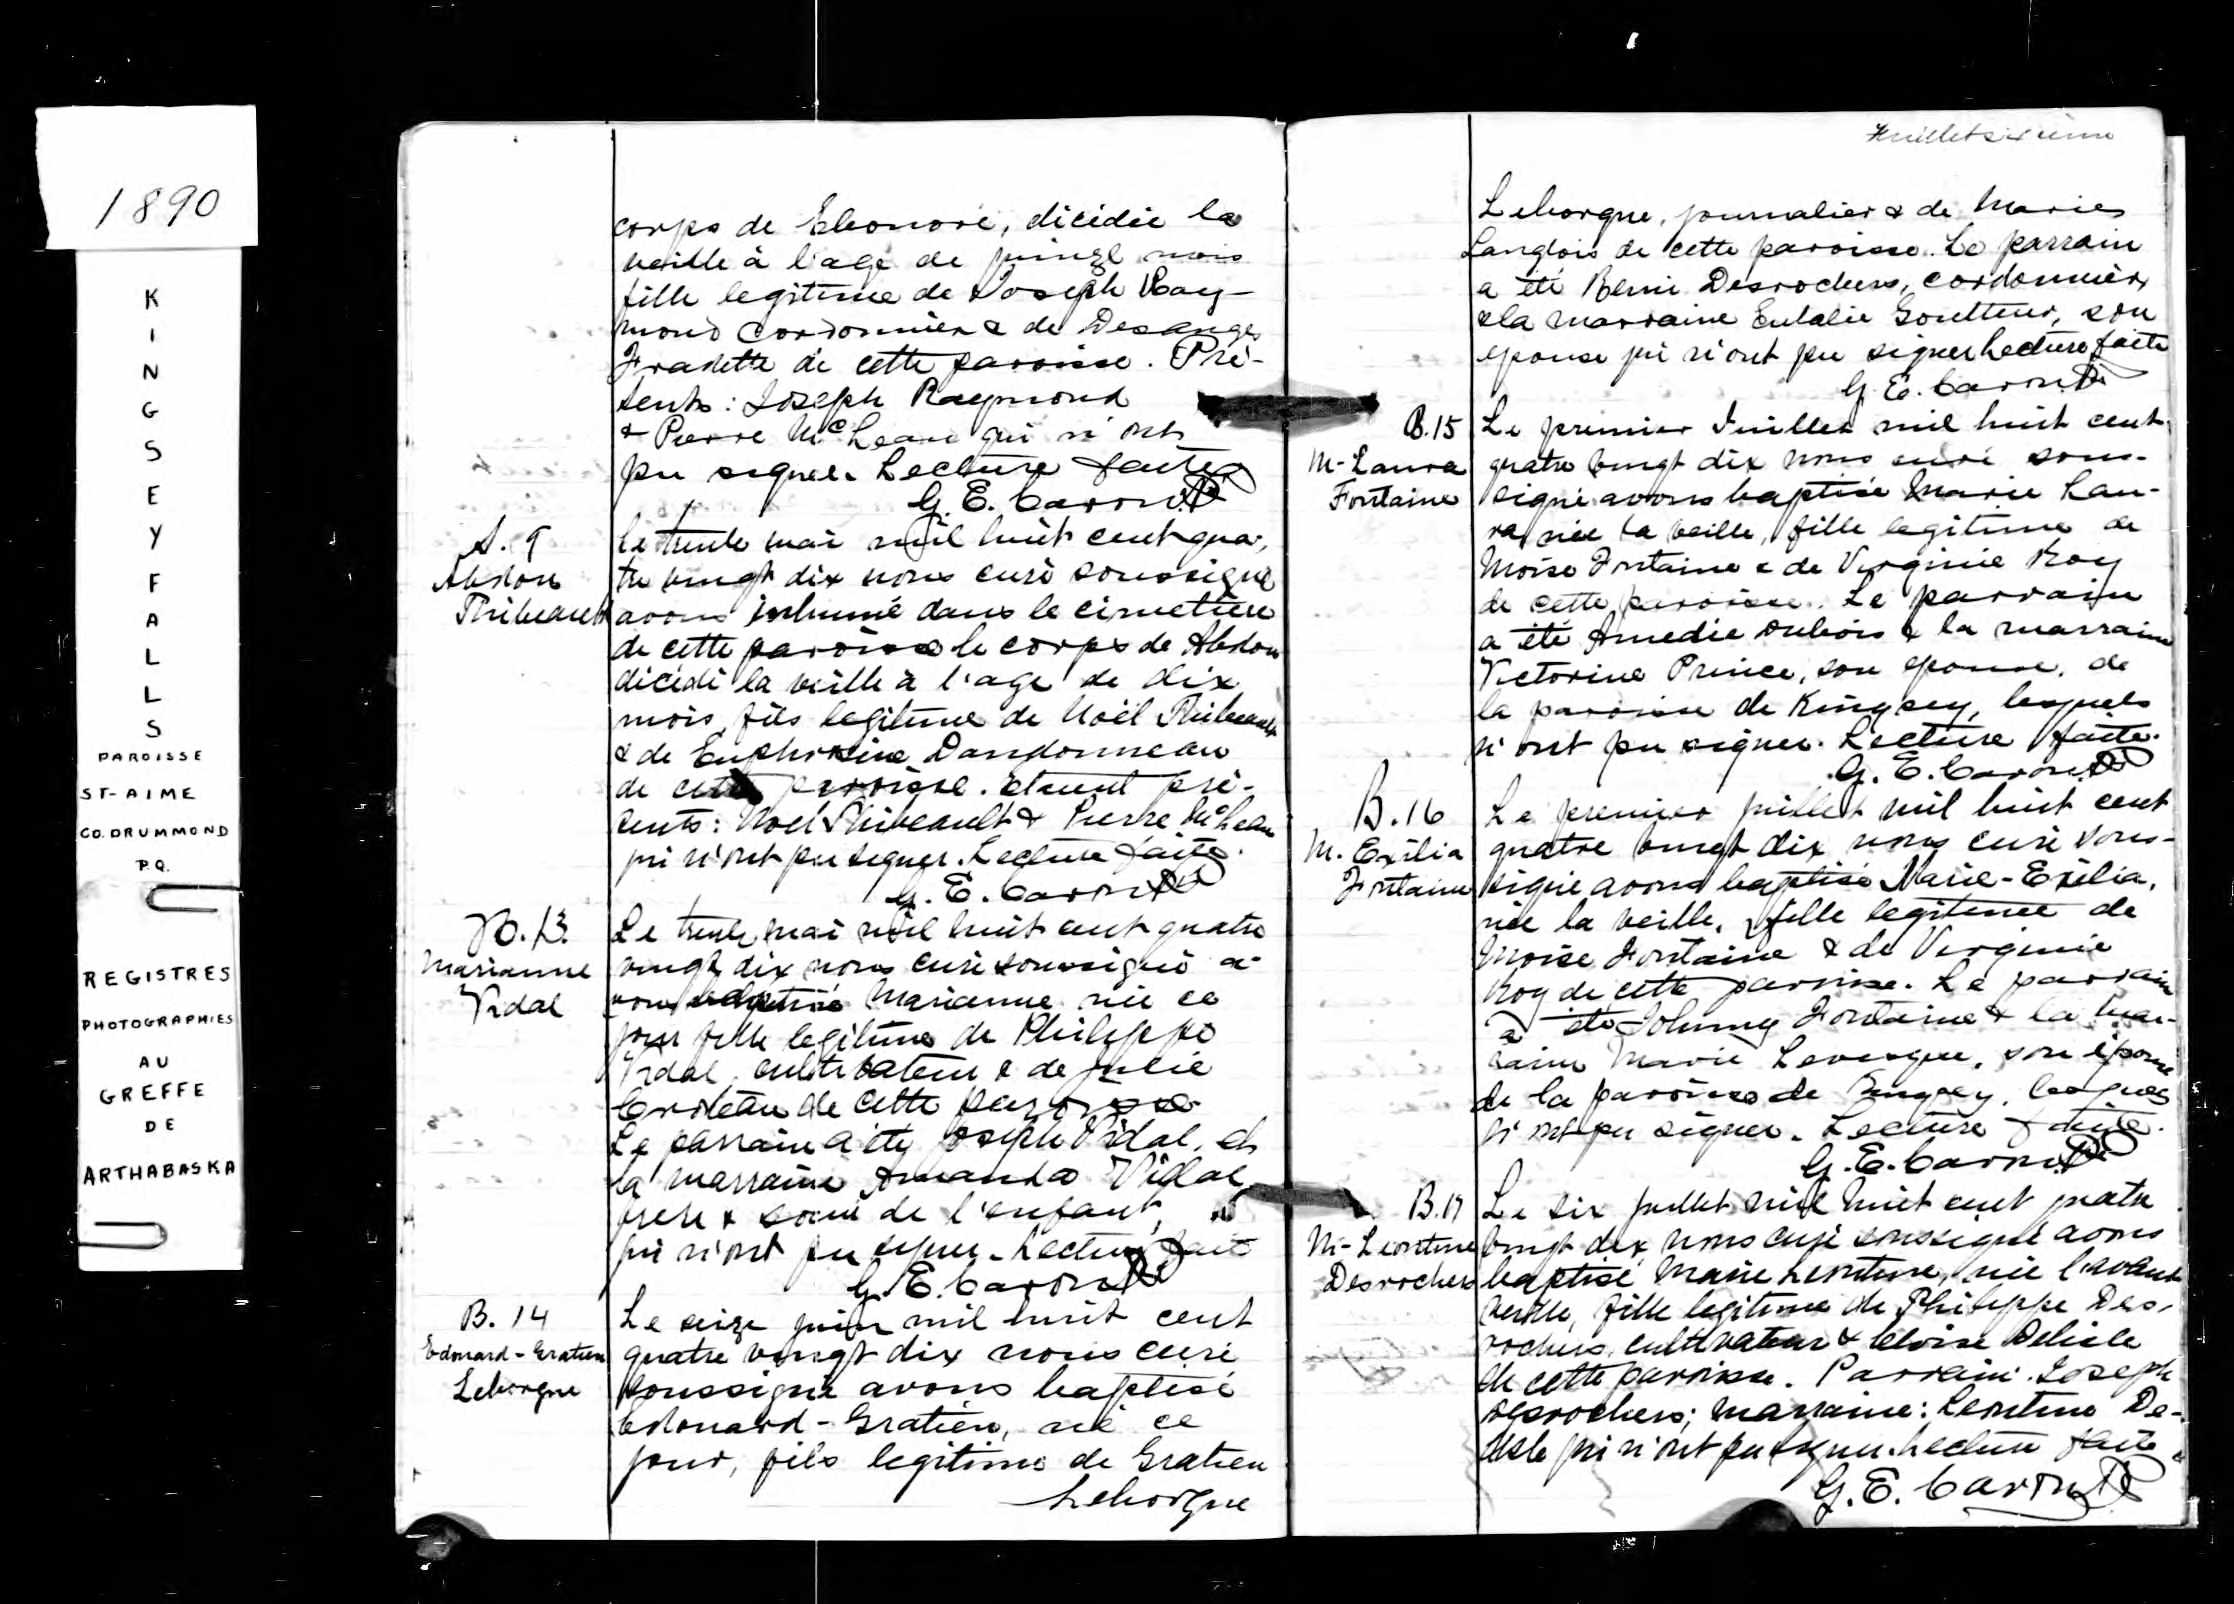 1890
KINGSEY FALLS
PAROISSE
ST-AIME
CO. DRUMMOND
P.Q.
REGISTRES
PHOTOGRAPHIES
AU
GREFFE
DE
ARTHABASKA
corps de Eleonore, dicédée la
veille à l'age de quinze mois
fille legitime de Joseph Ray-
mond cordonnier & de Desanges
Fradette de cette paroisse. Pré-
sents: Joseph Raymond
& Pierre McLean qui n'ont
pu signer. Lecture faite
G. E. Caron Ptre
S. 9
Abdon
Thibeault
le trente mai mil huit cent qua-
tre vingt dix nous curé soussigné
avons inhumé dans le cimetière
de cette paroisse le corps de Abdon
dicédé la veille à l'age de dix
mois, fils legitime de Noël Thibeault
& de Euphrosine Dandonneau
de cette paroisse. etaient pré-
sents: Noël Thibeault & Pierre McLean
qui n'ont pu signer. Lecture faite.
G. E. Caron Ptre
B. 13.
Marianne
Vidal
Le trente mai mil huit cent quatre
vingt dix nous curé soussigné a-
vons baptisé Marianne née ce
jour fille legitime de Philippe
Vidal, cultivateur & de Julie
Croteau de cette paroisse
Le parrain a été Joseph Vidal, et
la marraine Amanda Vidal
frere & soeur de l'enfant,
qui n'ont pu signer. Lecture faite
G. E. Caron Ptre
B. 14
Edouard-Gratien
Leborgne
Le seize juin mil huit cent
quatre vingt dix nous curé
soussigné avons baptisé
Edouard-Gratien, né ce
jour, fils legitime de Gratien
Leborgne
Feuillet sixième
Leborgne, journalier & de Marie
Langlois de cette paroisse. Le parrain
a été Remi Desrochers, cordonnier
& la marraine Eulalie Goutteur, son
epouse qui n'ont pu signer Lecture faite
G. E. Caron Ptre
B. 15
M-Laura
Fontaine
Le premier Juillet mil huit cent
quatre vingt dix nous curé sous-
signé avons baptisé Marie Lau-
ra née la veille, fille legitime de
Moïse Fontaine & de Virginie Roy
de cette paroisse. Le parrain
a été Amedie Dubois & la marraine
Victorine Prince, son epouse, de
la paroisse de Kingsey, lesquels
n'ont pu signer. Lecture faite.
G. E. Caron Ptre
B. 16
M. Exilia
Fontaine
Le premier juillet mil huit cent
quatre vingt dix nous curé sous-
signé avons baptisé Marie-Exilia,
née la veille, fille legitime de
Moïse Fontaine & de Virginie
Roy de cette paroisse. Le parrain
a été Johnny Fontaine & la mar-
raine Marie Levesque, son épouse
de la paroisse de Kingsey, lesquels
n'ont pu signer. Lecture faite.
G. E. Caron Ptre
B. 17
M-Leontine
Desrochers
Le six juillet mil huit cent quatre
vingt dix nous curé soussigné avons
baptisé Marie Leontine, née l'avant
veille, fille legitime de Philippe Des-
rochers, cultivateur & Eloise Delisle
de cette paroisse. Parrain: Joseph
Desrochers; marraine: Leontine De-
lisle qui n'ont pu signer. Lecture faite
G. E. Caron Ptre